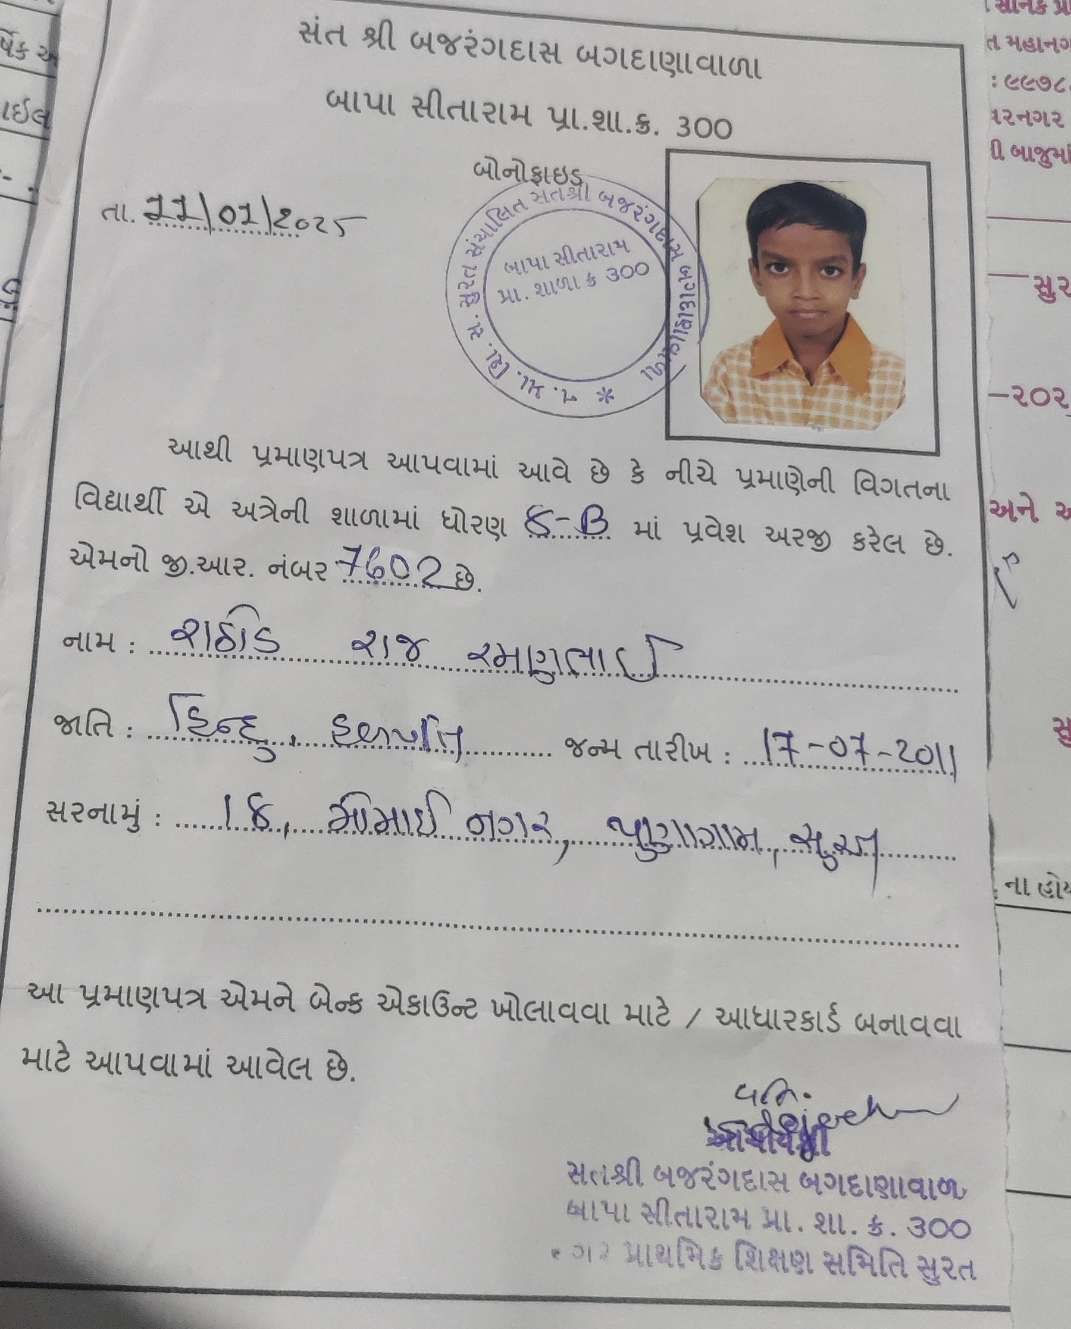 સંત શ્રી બજરંગદાસ બગદાણાવાળા
બાપા સીતારામ પ્રા.શા.ક્ર. 300
બોનોફાઇડ
તા. 11/01/2025
ન. પ્રા. શિ. સ. સુરત સંચાલિત સંતશ્રી બજરંગદાસ બગદાણાવાળા
બાપા સીતારામ
પ્રા. શાળા ક્ર 300
આથી પ્રમાણપત્ર આપવામાં આવે છે કે નીચે પ્રમાણેની વિગતના
વિદ્યાર્થી એ અત્રેની શાળામાં ધોરણ 8-B માં પ્રવેશ અરજી કરેલ છે.
એમનો જી.આર. નંબર 7602 છે.
નામ : રાઠોડ રાજ રમણભાઈ
જાતિ : હિન્દુ, હળપતિ જન્મ તારીખ : 17-07-2011
સરનામું : 18, મોમાઈ નગર, પુણાગામ, સુરત
આ પ્રમાણપત્ર એમને બેન્ક એકાઉન્ટ ખોલાવવા માટે / આધારકાર્ડ બનાવવા
માટે આપવામાં આવેલ છે.
આચાર્યશ્રી
સંતશ્રી બજરંગદાસ બગદાણાવાળા
બાપા સીતારામ પ્રા. શા. ક્ર. 300
નગર પ્રાથમિક શિક્ષણ સમિતિ સુરત
ત મહાનગ
: ૯૯૭૮
રનગર
ી બાજુમાં
સુર
-૨૦૨
અને
ના હોય